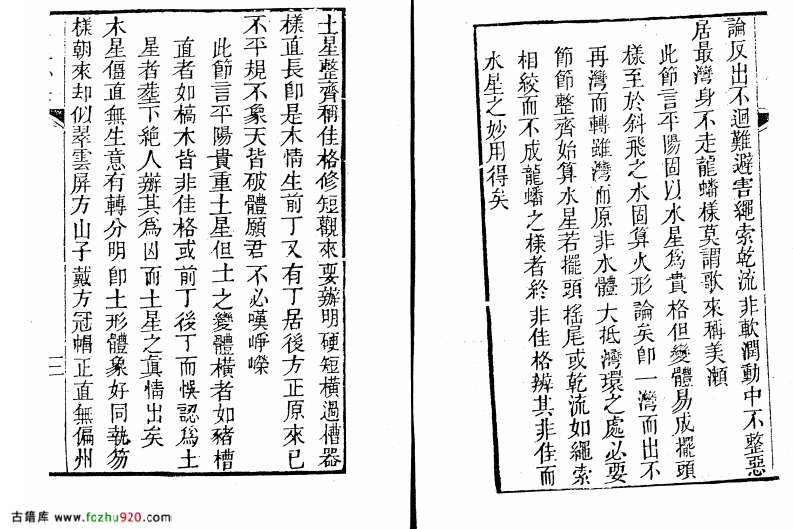 論反出不迴難避害繩索乾流非軟潤動中不整惡
居最灣身不走龍蟠樣莫謂歌來稱美瀬
此節言平陽固以水星為貴格但變體易成擺頭
樣至於斜飛之水固算火形論矣即一灣而出不
再灣而轉雖灣而原非水體大抵灣環之處必要
節節整齊始算水星若擺頭搖尾或乾流如繩索
相絞而不成龍蟠之樣者終非佳格辨其非佳而
水星之妙用得矣
土星整齊稱佳格修短觀來要辦明硬短橫過槽器
樣直長即是木情生前丁又有丁居後方正原來已
不平規不象天皆破體願君不必嘆崢嶸
此節言平陽貴重土星但土之變體橫者如豬槽
直者如槁木皆非佳格或前丁後丁而悞認為土
星者塟下絶人辦其為凶而土星之眞情出矣
木星僵直無生意有轉分明即土形體象好同執笏
樣朝來却似翠雲屏方山子戴方冠帽正直無偏州
古籍库 www.fczhu920.com